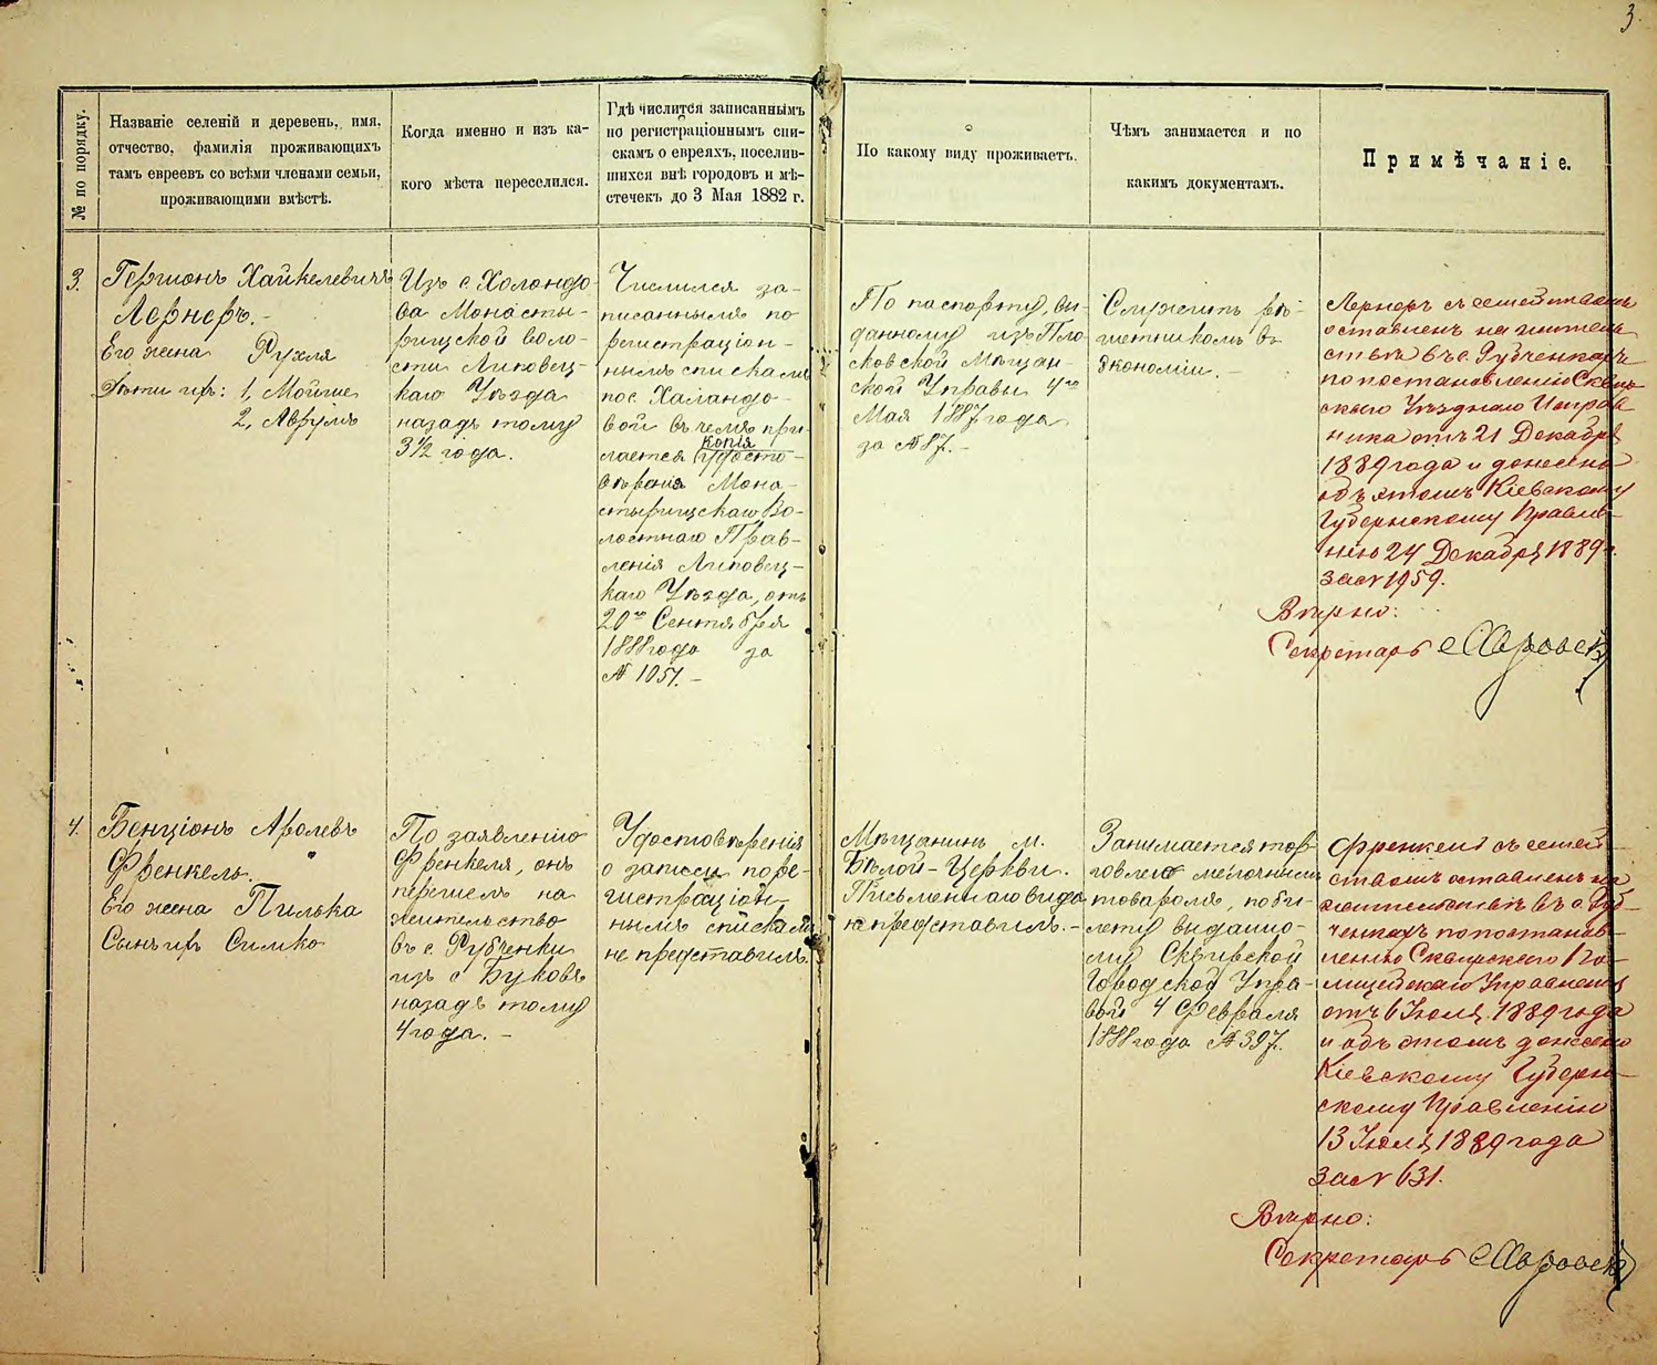 3.
№ по порядку.
Названіе селеній и деревень, имя,
отчество, фамилія проживающихъ
тамъ евреевъ со всѣми членами семьи,
проживающими вмѣстѣ.
Когда именно и изъ ка-
кого мѣста переселился.
Гдѣ числится записаннымъ
по регистраціоннымъ спи-
скамъ о евреяхъ, поселив-
шихся внѣ городовъ и мѣ-
стечекъ до 3 Мая 1882 г.
По какому виду проживаетъ.
Чѣмъ занимается и по
какимъ документамъ.
Примѣчаніе.
3.
Гершонъ Хайкелевичъ
Лернеръ.-
Его жена Рухля
Дѣти ихъ: 1, Мойше
2, Аврумъ
Изъ с. Холандо-
ва Монасты-
рищской воло-
сти Липовец-
каго Уѣзда
назадъ тому
3½ года.
Числился за-
писаннымъ по
регистраціон-
нымъ спискамъ
по с. Халандо-
вой въ чемъ при-
лается копія удосто-
вѣренія Мона-
стырищскаго Во-
лостнаго Прав-
ленія Липовец-
каго Уѣзда, отъ
20го Сентября
1888 года за
№ 1057.-
По паспорту, вы-
данному изъ Пло-
сковской Мѣщан-
ской Управы 4го
Мая 1887 года
за № 87.-
Служитъ рѣ-
шетникомъ въ
Экономіи.-
Лернеръ съ семействомъ
оставленъ на житель-
ствѣ въ с. Рубченкахъ
по постановленію Сквир-
скаго Уѣзднаго Исправ
ника отъ 21 Декабря
1889 года и донесено
объ этомъ Кіевскому
Губернскому Правле-
нію 24 Декабря 1889 г.
за № 1959.
Вѣрно:
Секретарь
4.
Бенціонъ Аролевъ
Френкель.
Его жена Пилька
Сынъ ихъ Симко
По заявленію
Френкеля, онъ
перешелъ на
жительство
въ с. Рубченки
изъ с Буковъ
назадъ тому
4 года.-
Удостовѣренія
о записи по ре-
гистраціон-
нымъ спискамъ
не представилъ.
Мѣщанинъ м.
Бѣлой-Церкви.
Письменнаго вида
не представилъ.-
Занимается тор-
говлею мелочнымъ
товаромъ, по би-
лету выданно-
му Сквирской
Городской Упра-
вой 4 Февраля
1888 года № 397.
Френкель съ семей-
ствомъ оставленъ на
жительствѣ въ с Руб-
ченкахъ по постанов-
ленію Сквирскаго По-
лицейскаго Управленія
отъ 6 Іюля 1889 года
и объ этомъ донесено
Кіевскому Губерн-
скому Правленію
13 Іюля 1889 года
за № 631.
Вѣрно:
Секретарь